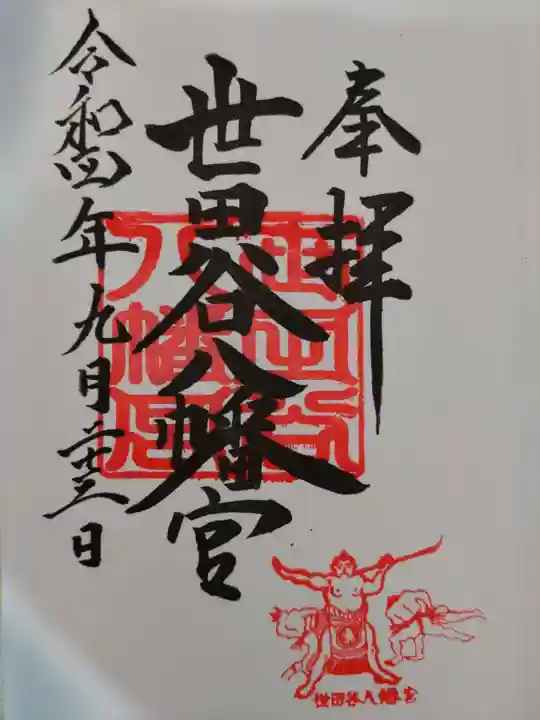 奉拝
世田谷八幡宮
世田谷
八幡宮
令和四年九月二十三日
世田谷八幡宮